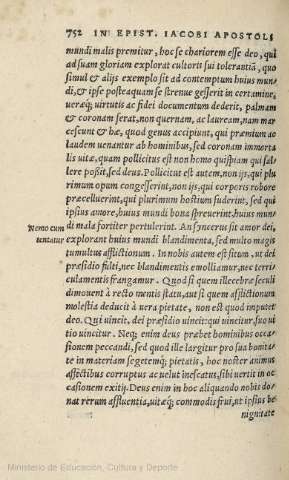 752 IN EPIST. IACOBI APOSTOLI
mundi malis premitur, hoc se chariorem esse deo, qui
ad suam gloriam explorat cultoris sui tolerantiã, quo
simul & alijs exemplo sit ad contemptum huius mun=
di, & ipse posteaquam se strenue gesserit in certamine,
ueraq́; uirtutis ac fidei documentum dederit, palmam
& coronam ferat, non quernam, ac lauream, nam mar
cescunt & hæ, quod genus accipiunt, qui præmium ac
laudem uenantur ab hominibus, sed coronam immorta
lis uitæ, quam pollicitus est non homo quispiam qui fal
lere possit, sed deus. Pollicitus est autem, non ijs, qui plu
rimum opum congesserint, non ijs, qui corporis robore
præcelluerint, qui plurimum hostium fuderint, sed qui
ipsius amore, huius mundi bona spreuerint, huius mun
di mala fortiter pertulerint. An syncerus sit amor dei,
Nemo cum
tentatur
explorant huius mundi blandimenta, sed multo magis
tumultus afflictionum. In nobis autem est situm, ut dei
præsidio fulti, nec blandimentis emolliamur, nec terri
culamentis frangamur. Quod si quem illecebræ seculi
dimouent à recto mentis statu, aut si quem afflictionum
molestia deducit à uera pietate, non est quod imputet
deo. Qui uincit, dei præsidio uincit: qui uincitur, suo ui
tio uincitur. Neq; enim deus præbet hominibus occa=
sionem peccandi, sed quod ille largitur pro sua bonita=
te in materiam segetemq́; pietatis, hoc noster animus
affectibus corruptus ac uelut inescatus, sibi uertit in oc
casionem exitij. Deus enim in hoc aliquando nobis do=
nat rerum affluentia, uitæq́; commodis frui, ut ipsius be
nignitate
Ministerio de Educación, Cultura y Deporte